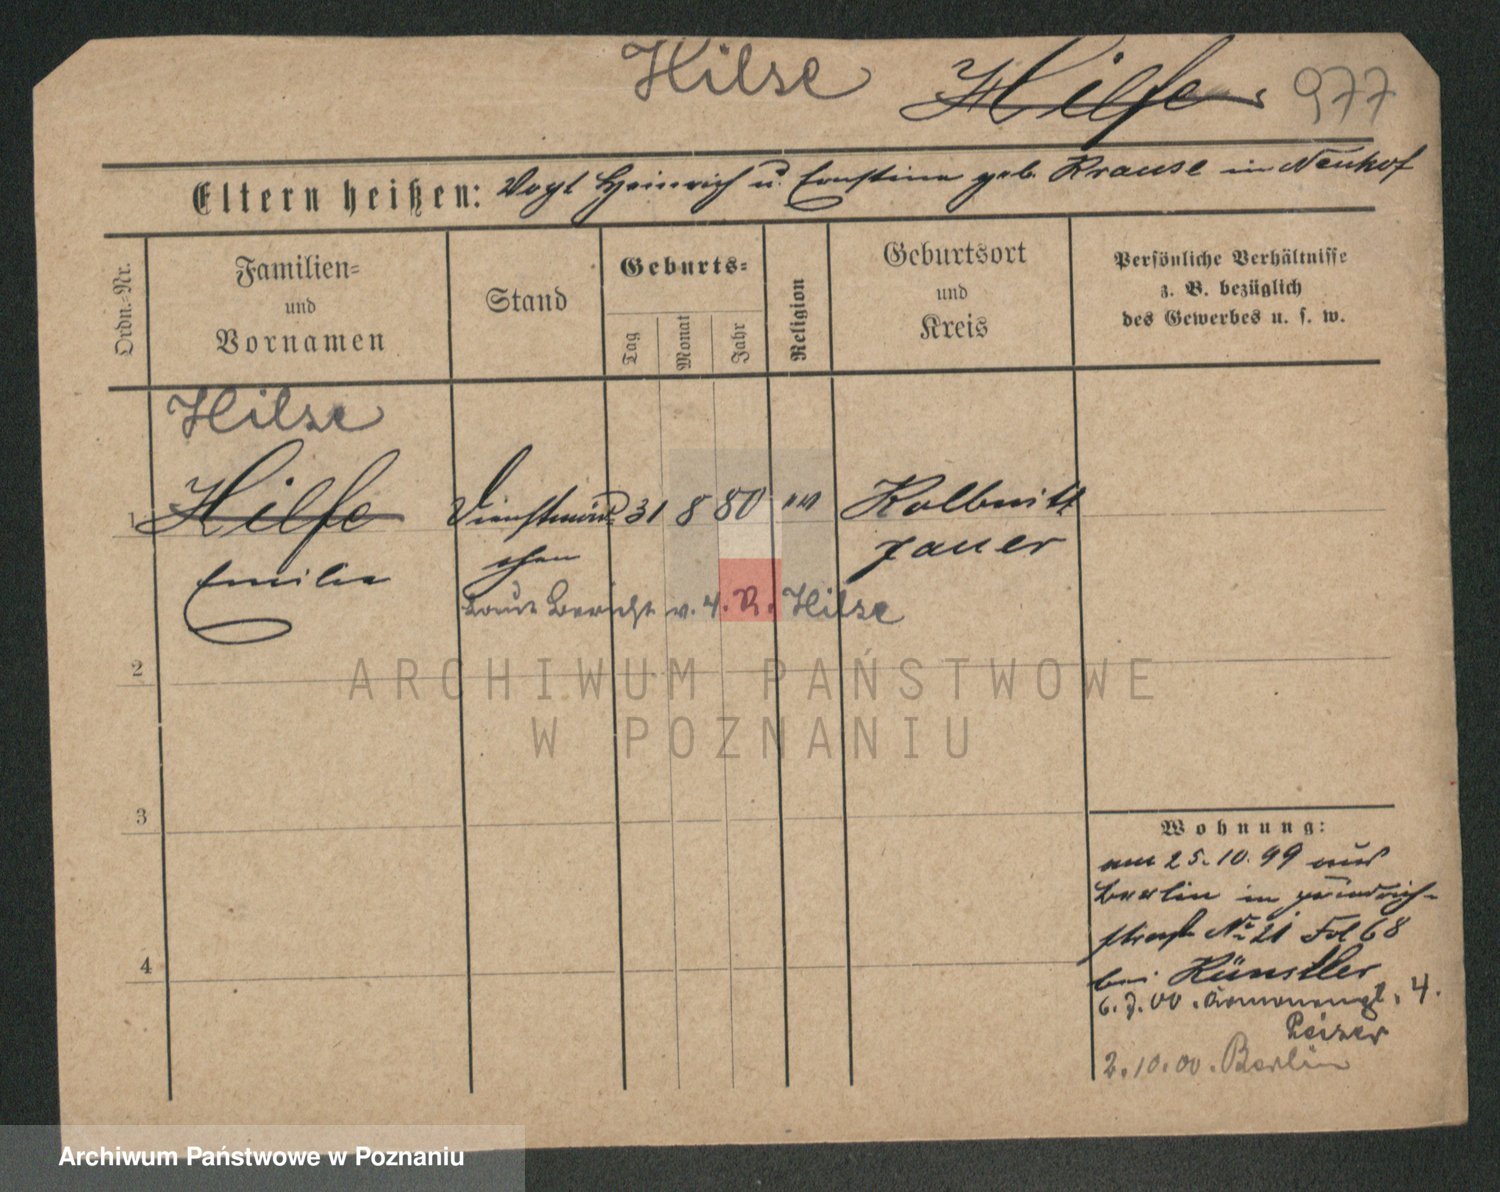 Hilse Hilfe 977
Eltern heißen: Vogt Heinrich u. Ernstine geb. Krause in Neuhof
Ordn.-Nr.
Familien-
und
Vornamen
Stand
Geburts-
Tag
Monat
Jahr
Religion
Geburtsort
und
Kreis
Persönliche Verhältnisse
z. B. bezüglich
des Gewerbes u. s. w.
Hilse
1 Hilfe Dienstmäd- 31 8 80 Kolbnitz
Emilie chen Jauer
Laut Bericht v. 4. R. Hilse
2
ARCHIWUM PAŃSTWOWE
W POZNANIU
3
4
Wohnung:
am 25.10.99 aus
Berlin in Friedrich-
straße No 21 Fol 68
bei Künstler
6.7.00. 4.
Peiser
2.10.00. Berlin
Archiwum Państwowe w Poznaniu